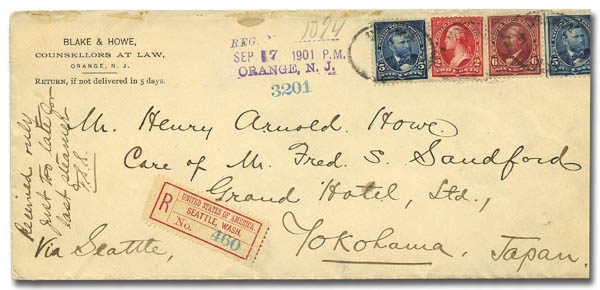 BLAKE & HOWE,
COUNSELLORS AT LAW,
ORANGE, N. J.
RETURN, if not delivered in 5 days.
REG. N 1094
SEP 17 1901 P.M.
ORANGE, N. J.
3201
5
2
2
6
6
5
Mr. Henry Arnold Howe
Care of Mr. Fred. S. Sandford
Grand Hotel, Ltd.,
Yokohama, Japan.
Via Seattle,
Received only
just too late for
last steamer
R
UNITED STATES OF AMERICA.
SEATTLE, WASH.
No. 460